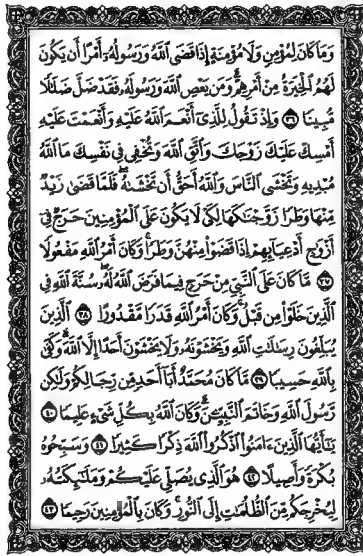 وَمَا كَانَ لِمُؤْمِنٍ وَلَا مُؤْمِنَةٍ إِذَا قَضَى اللَّهُ وَرَسُولُهُ أَمْرًا أَن يَكُونَ
لَهُمُ الْخِيَرَةُ مِنْ أَمْرِهِمْ وَمَن يَعْصِ اللَّهَ وَرَسُولَهُ فَقَدْ ضَلَّ ضَلَالًا
مُّبِينًا ٣٦ وَإِذْ تَقُولُ لِلَّذِي أَنْعَمَ اللَّهُ عَلَيْهِ وَأَنْعَمْتَ عَلَيْهِ
أَمْسِكْ عَلَيْكَ زَوْجَكَ وَاتَّقِ اللَّهَ وَتُخْفِي فِي نَفْسِكَ مَا اللَّهُ
مُبْدِيهِ وَتَخْشَى النَّاسَ وَاللَّهُ أَحَقُّ أَن تَخْشَاهُ فَلَمَّا قَضَى زَيْدٌ
مِّنْهَا وَطَرًا زَوَّجْنَاكَهَا لِكَيْ لَا يَكُونَ عَلَى الْمُؤْمِنِينَ حَرَجٌ فِي
أَزْوَاجِ أَدْعِيَائِهِمْ إِذَا قَضَوْا مِنْهُنَّ وَطَرًا وَكَانَ أَمْرُ اللَّهِ مَفْعُولًا
٣٧ مَّا كَانَ عَلَى النَّبِيِّ مِنْ حَرَجٍ فِيمَا فَرَضَ اللَّهُ لَهُ سُنَّةَ اللَّهِ فِي
الَّذِينَ خَلَوْا مِن قَبْلُ وَكَانَ أَمْرُ اللَّهِ قَدَرًا مَّقْدُورًا ٣٨ الَّذِينَ
يُبَلِّغُونَ رِسَالَاتِ اللَّهِ وَيَخْشَوْنَهُ وَلَا يَخْشَوْنَ أَحَدًا إِلَّا اللَّهَ وَكَفَى
بِاللَّهِ حَسِيبًا ٣٩ مَّا كَانَ مُحَمَّدٌ أَبَا أَحَدٍ مِّن رِّجَالِكُمْ وَلَكِن
رَّسُولَ اللَّهِ وَخَاتَمَ النَّبِيِّينَ وَكَانَ اللَّهُ بِكُلِّ شَيْءٍ عَلِيمًا ٤٠
يَا أَيُّهَا الَّذِينَ آمَنُوا اذْكُرُوا اللَّهَ ذِكْرًا كَثِيرًا ٤١ وَسَبِّحُوهُ
بُكْرَةً وَأَصِيلًا ٤٢ هُوَ الَّذِي يُصَلِّي عَلَيْكُمْ وَمَلَائِكَتُهُ
لِيُخْرِجَكُم مِّنَ الظُّلُمَاتِ إِلَى النُّورِ وَكَانَ بِالْمُؤْمِنِينَ رَحِيمًا ٤٣